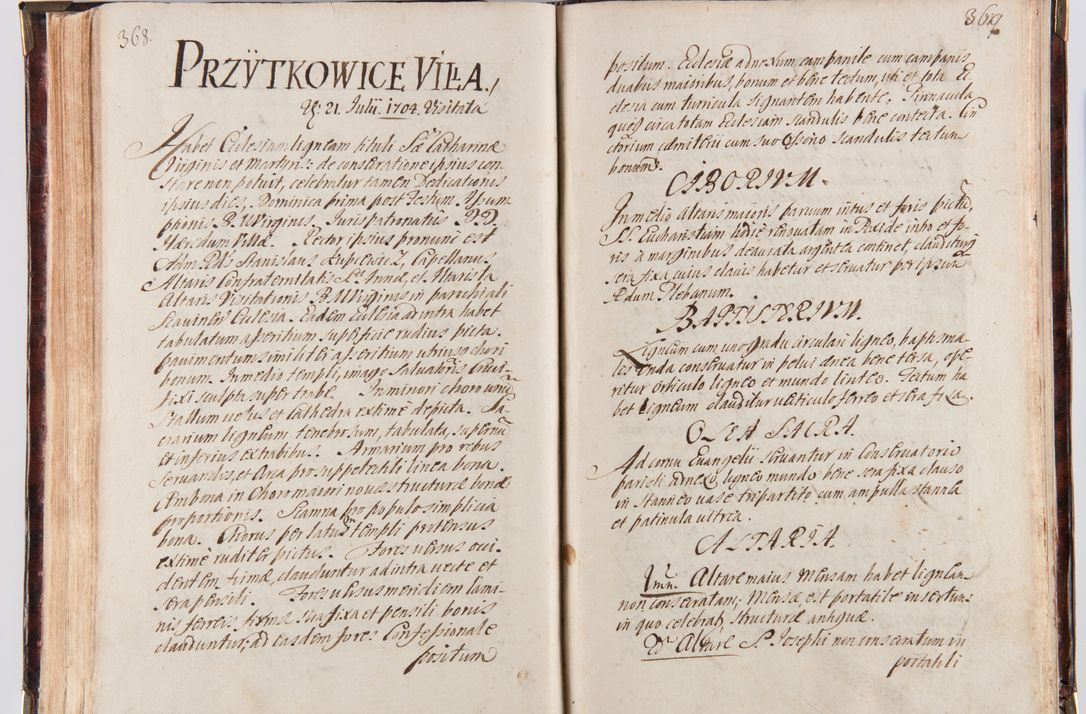 368.
PRZŸTKOWICE VILLA.
21. Julii 1704. Visitata
Habet Ecclesiam ligneam tituli Sæ Catharinæ
Virginis et Martyris: de consecratione ipsius con
stare non potuit, celebratur tamen Dedicationis
ipsius dies, Dominica prima post Festum Assum
ptionis B. V Virginis. Juris patronatus DD.
Hæredum Villæ. Rector ipsius pronunc est
Adm. Rdus Stanislaus Capellanus
Altaris Confraternitatis Sæ Annæ, et Altarista
Altaris Visitationis B. V Virginis in parochiali
Ecclesia. Eadem Ecclesia ad intra habet
tabulatum asseritium superficie rudius picta.
pavimentum similiter asseritium utriusq chori
bonum. In medio templi, imago Salvatoris Cruci
fixi sculpta super trabe. In minori choro unum
stallum vetus et Cathedra extime depicta. Sa
crarium ligneum tenebrosum, tabulatum supernum
et inferius extrabibus. Armarium pro rebus
servandis, et Arca pro suppellectili linea bona.
Ambona in Choro maiori novæ structuræ bonæ
proportionis. Scamna pro populo simplicia
bona. Chorus per latus templi protensus
extime ruditer pictus. Fores versus occi
dentem firmæ, clauduntur ad intra vecte et
sera pensili. Fores versus meridiem lami
nis ferreis firmæ sera fixa et pensili bonis
clauduntur, ad easdem fores Confessionale
positum
369
positum. Ecclesiæ adnexum campanile cum campanis
duabus maioribus, bonum et bene tectum, uti et tota Ec
clesia cum turricula signantem habente. Pinnacula
quoq circa totam Ecclesiam scandulis bene contecta. Cin
ctorium cæmiterii cum suo Osseno scandulis tectum
bonum.
CIBORIVM.
In medio altaris maioris parvum intus et foris pictum,
SS. Eucharistiam hodie renovatam in Pixide intro et fo
ris à marginibus deaurata argentea continet, clauditur
sera fixa, cuius clavis habetur et servatur per ipsum
Ædum Plebanum.
BAPTISTERIVM.
Ligneum cum uno gradu circulari ligneo, baptisma
les unda conservatur in pelvi ænea bene tersa, ope
ritur orbiculo ligneo et mundo linteo. Tectum ha
bet ligneum clauditur verticulo ferreo et sera fixa.
OLEA SACRA.
Ad cornu Evangelii servantur in Conservatorio
parieti adnexo, ligneo mundo bene sera fixa clauso
in stanneo vase tripartito cum ampulla stannea
et patinula vitrea.
ALTARIA
Imum Altare maius Mensam habet ligneam
non consecratam; Mensæ est portatile insertum
in quo celebratur, structuræ antiquæ.
2dum Altare S. Josephi non consecratum in
portatili